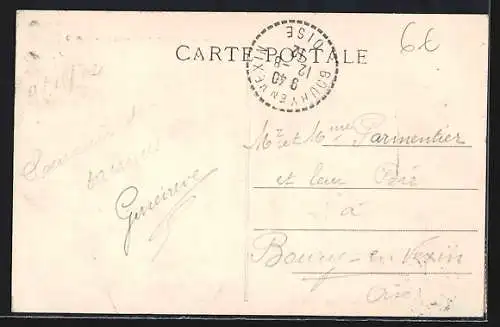 6€
CARTE POSTALE
BOURY EN VEXIN
OISE
9 40
12 - 8
Souvenir
Genevieve
Mr et Mme Parmentier
et leur
à
Boury-en-Vexin
Oise